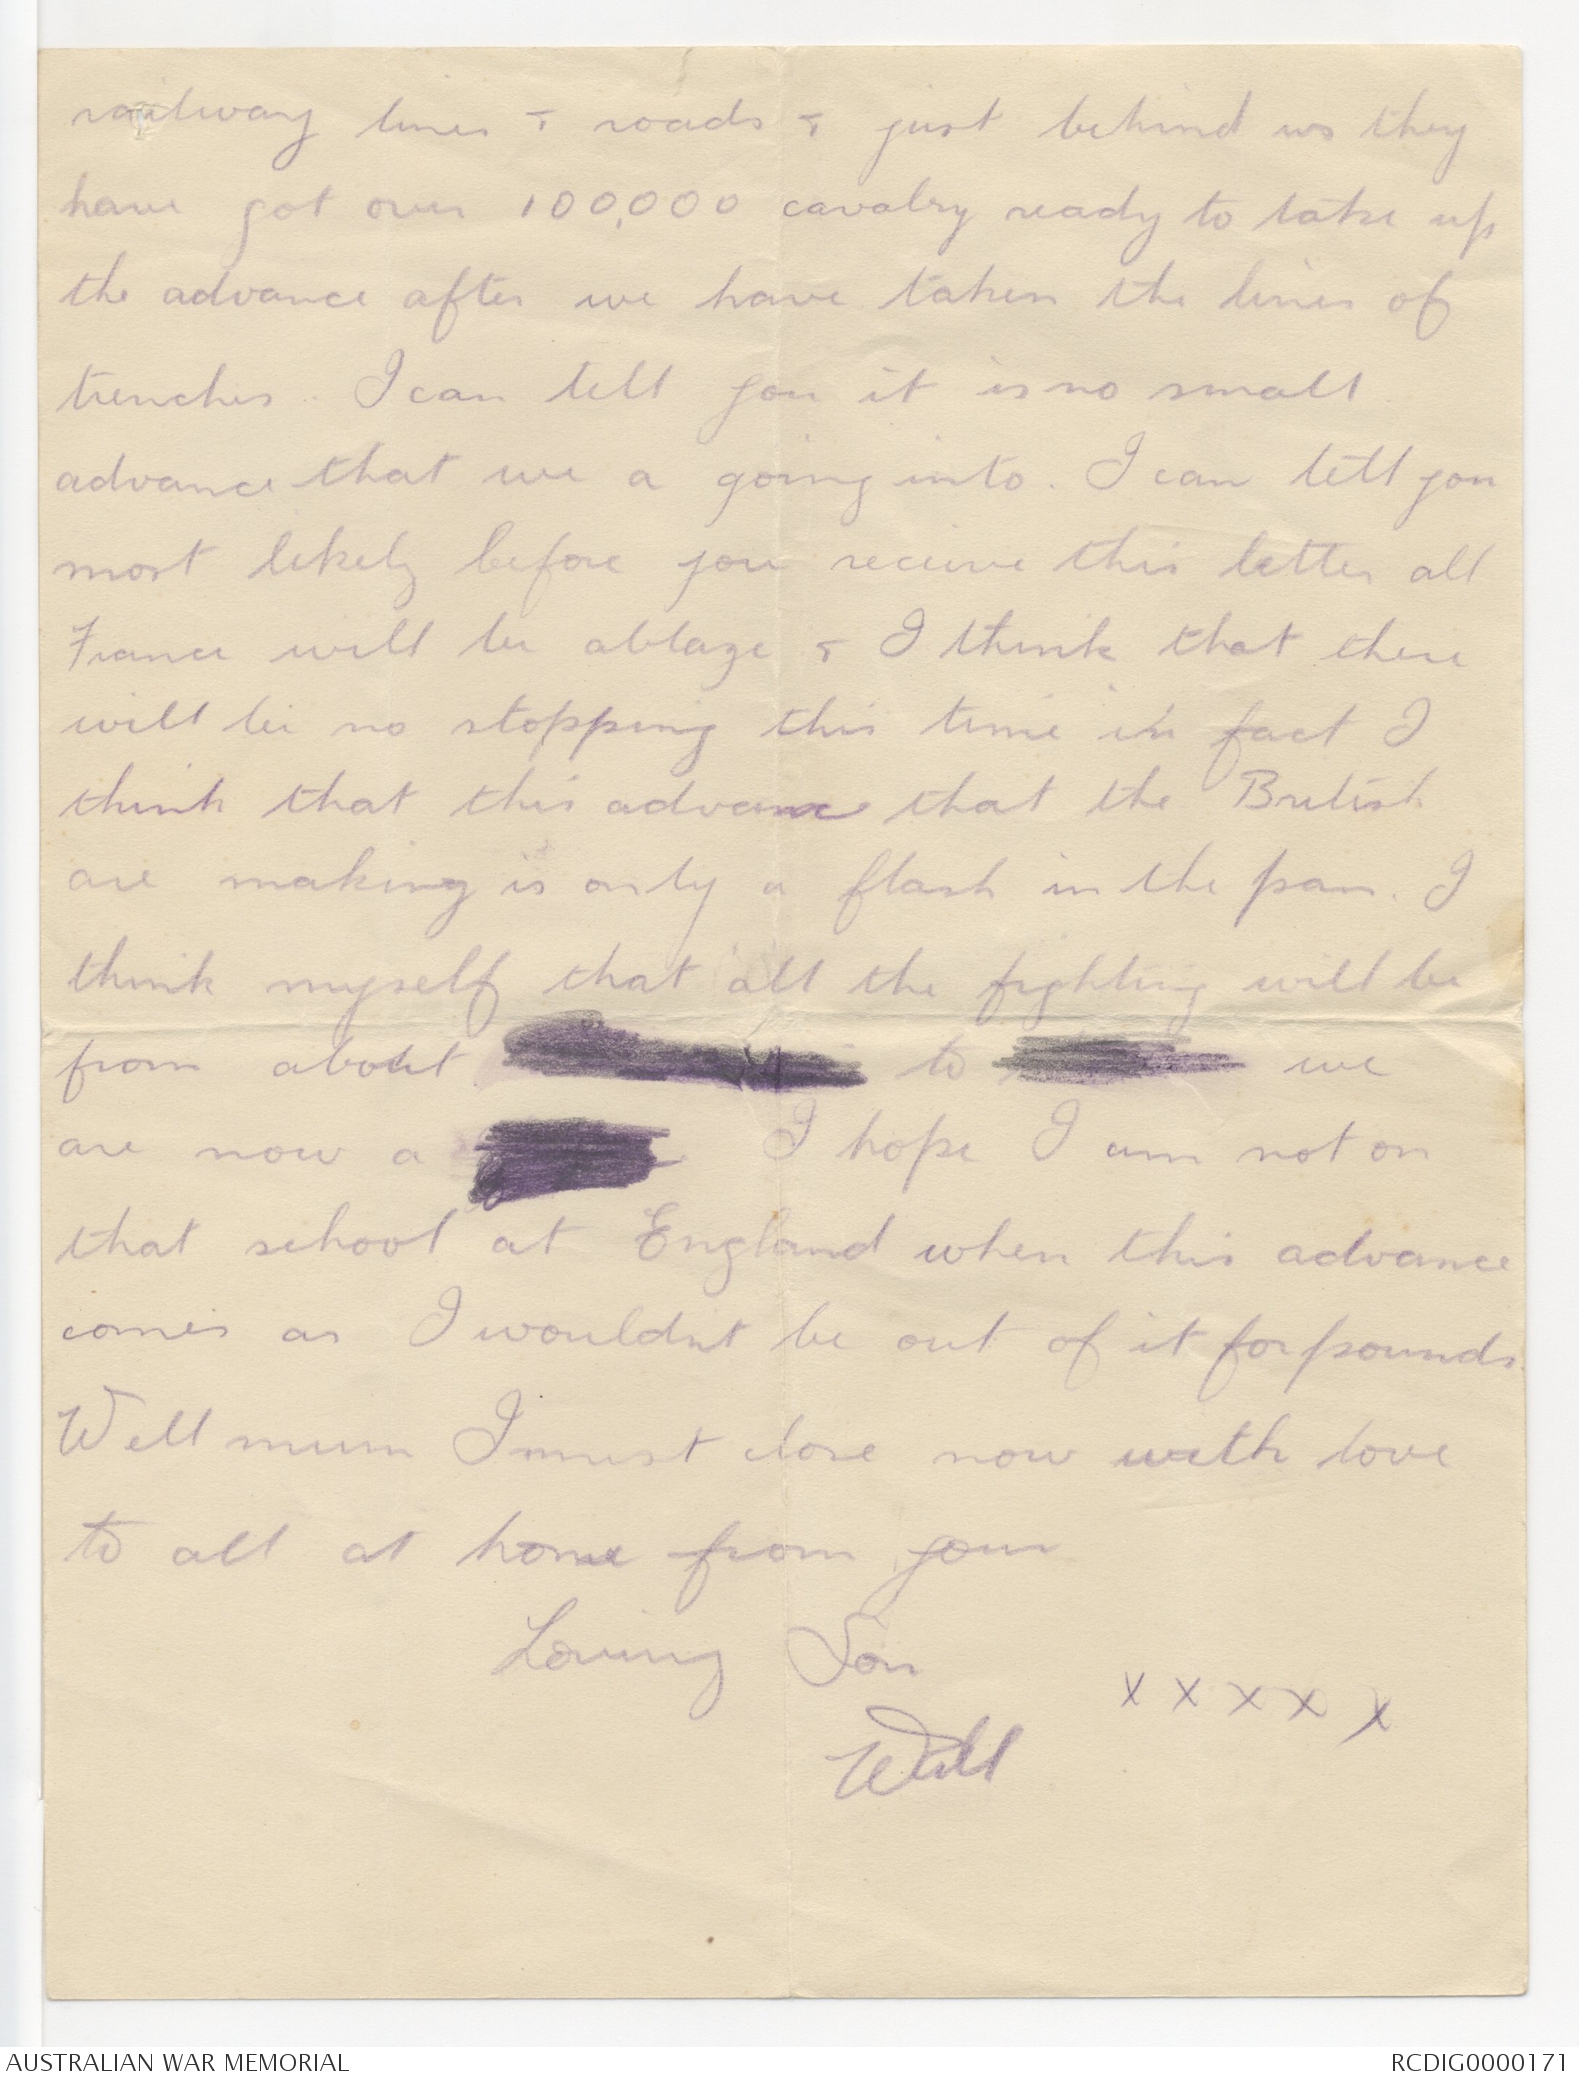 railway lines & roads & just behind us they
have got over 100,000 cavalry ready to take up
the advance after we have taken the lines of
trenches. I can tell you it is no small
advance that we a going into. I can tell you
most likely before you receive this letter all
France will be ablaze & I think that there
will be no stopping this time in fact I
think that this advance that the British
are making is only a flash in the pan. I
think myself that all the fighting will be
from about to we
are now a I hope I am not on
that school at England when this advance
comes as I wouldn't be out of it for pounds.
Well mum I must close now with love
to all at home from your
Loving Son
Will x x x x x
AUSTRALIAN WAR MEMORIAL RCDIG0000171